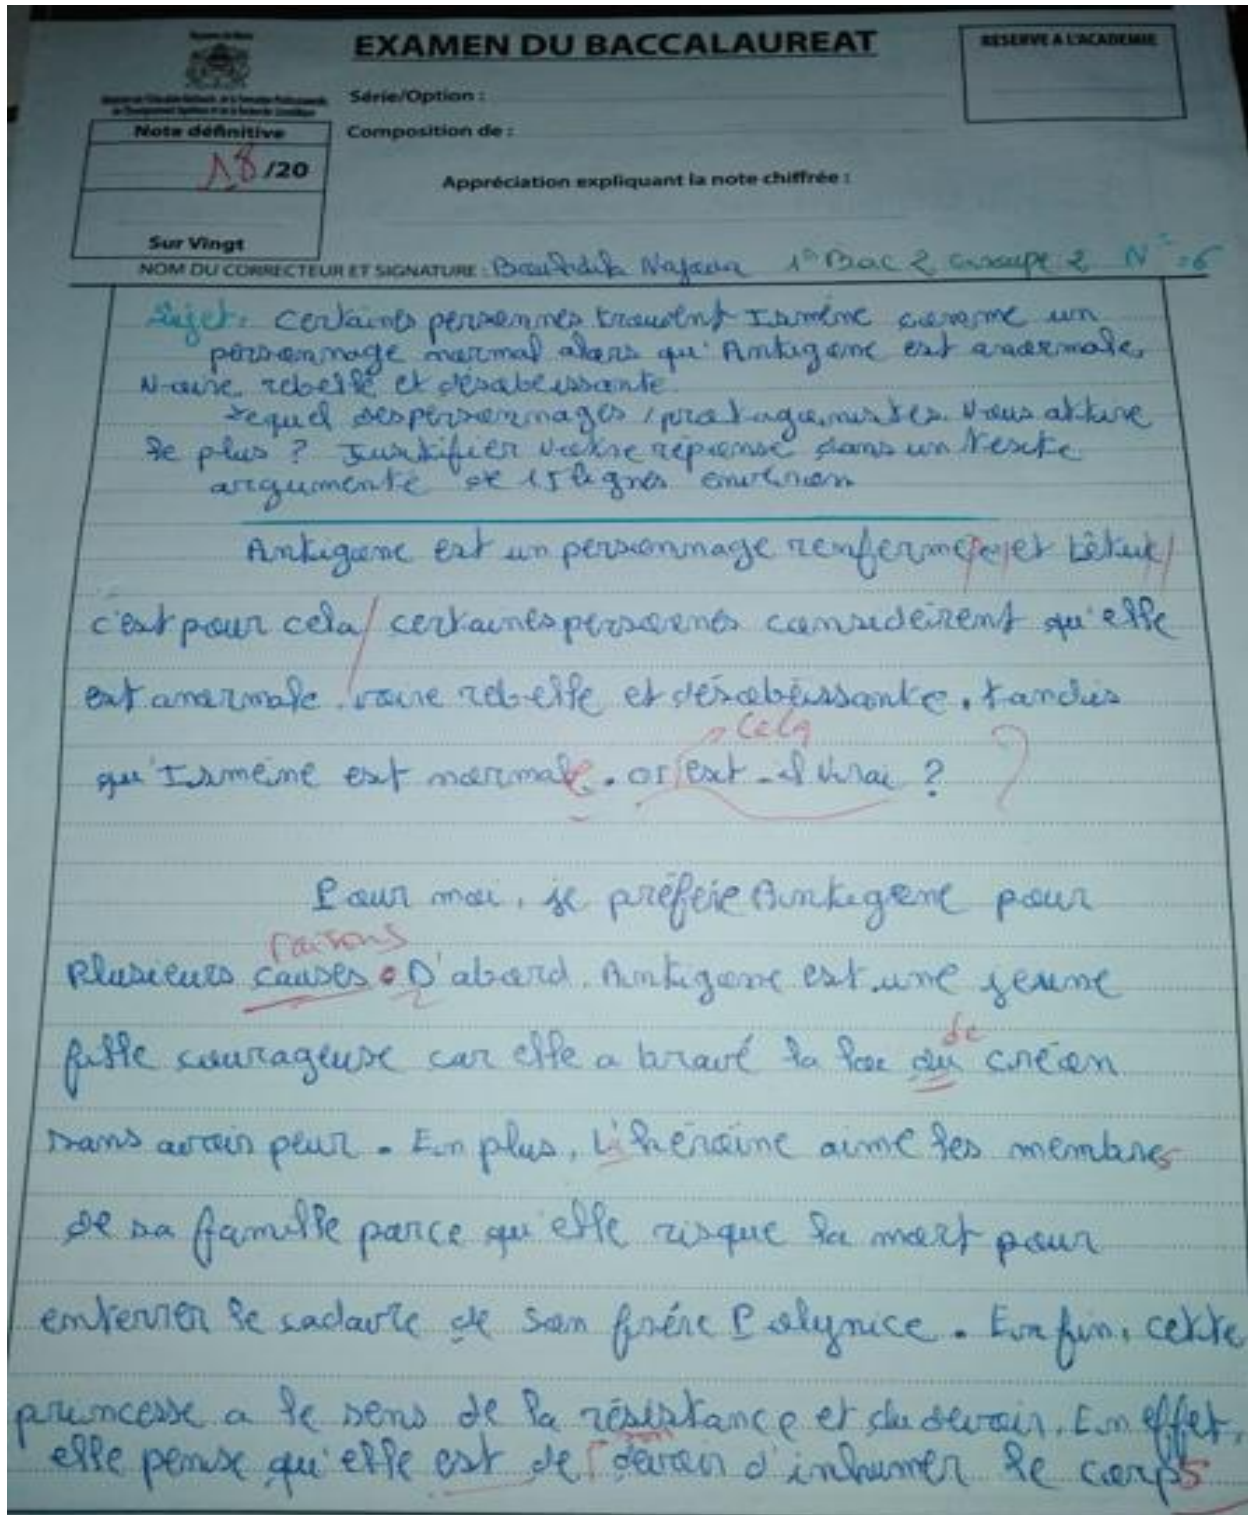 Royaume du Maroc
EXAMEN DU BACCALAUREAT
RESERVE A L'ACADEMIE
Série/Option :
Note définitive
Composition de :
18/20
Appréciation expliquant la note chiffrée :
Sur Vingt
NOM DU CORRECTEUR ET SIGNATURE : 1° Bac 2 Groupe 2 N° = 6
Sujet : Certaines personnes trouvent Ismène comme un
personnage normal alors qu'Antigone est anormale,
Voire rebelle et désobéissante.
Lequel des personnages / protagonistes Vous attire
le plus ? Justifier Votre réponse dans un texte
argumenté de 15 lignes environ
Antigone est un personnage renfermé et têtue
c'est pour cela certaines personnes considèrent qu'elle
est anormale, voire rebelle et désobéissante, tandis
cela
qu'Ismène est normale. or est-il Vrai ?
Pour moi, je préfère Antigone pour
raisons
Plusieurs causes. D'abord, Antigone est une jeune
de
fille courageuse car elle a bravé la loi du créon
sans avoir peur. En plus, L'héroïne aime les membres
de sa famille parce qu'elle risque la mort pour
enterrer le cadavre de son frére Polynice. Enfin, cette
princesse a le sens de la résistance et du devoir. En effet,
son
elle pense qu'elle est de devoir d'inhumer le corps